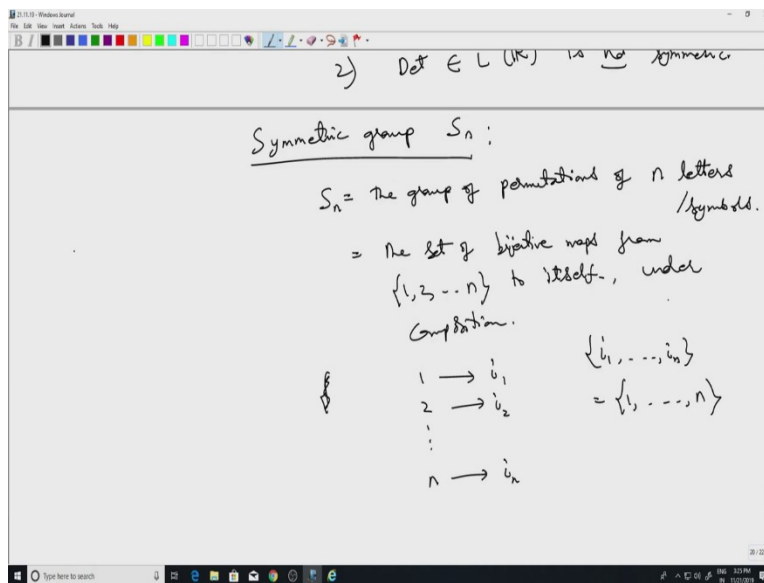 21.11.19 - Windows Journal
File Edit View Insert Actions Tools Help
2) Det ∈ L (IR) is no symmetric
Symmetric group Sn :
Sn = the group of permutations of n letters
/symbols.
= the set of bijective maps from
{1, 2, -- n} to itself, under
Composition.
1 → i1 {i1, ..., in}
2 → i2 = {1, ..., n}
⋮
n → in
20 / 22
Type here to search
ENG 3:25 PM
IN 11/21/2019